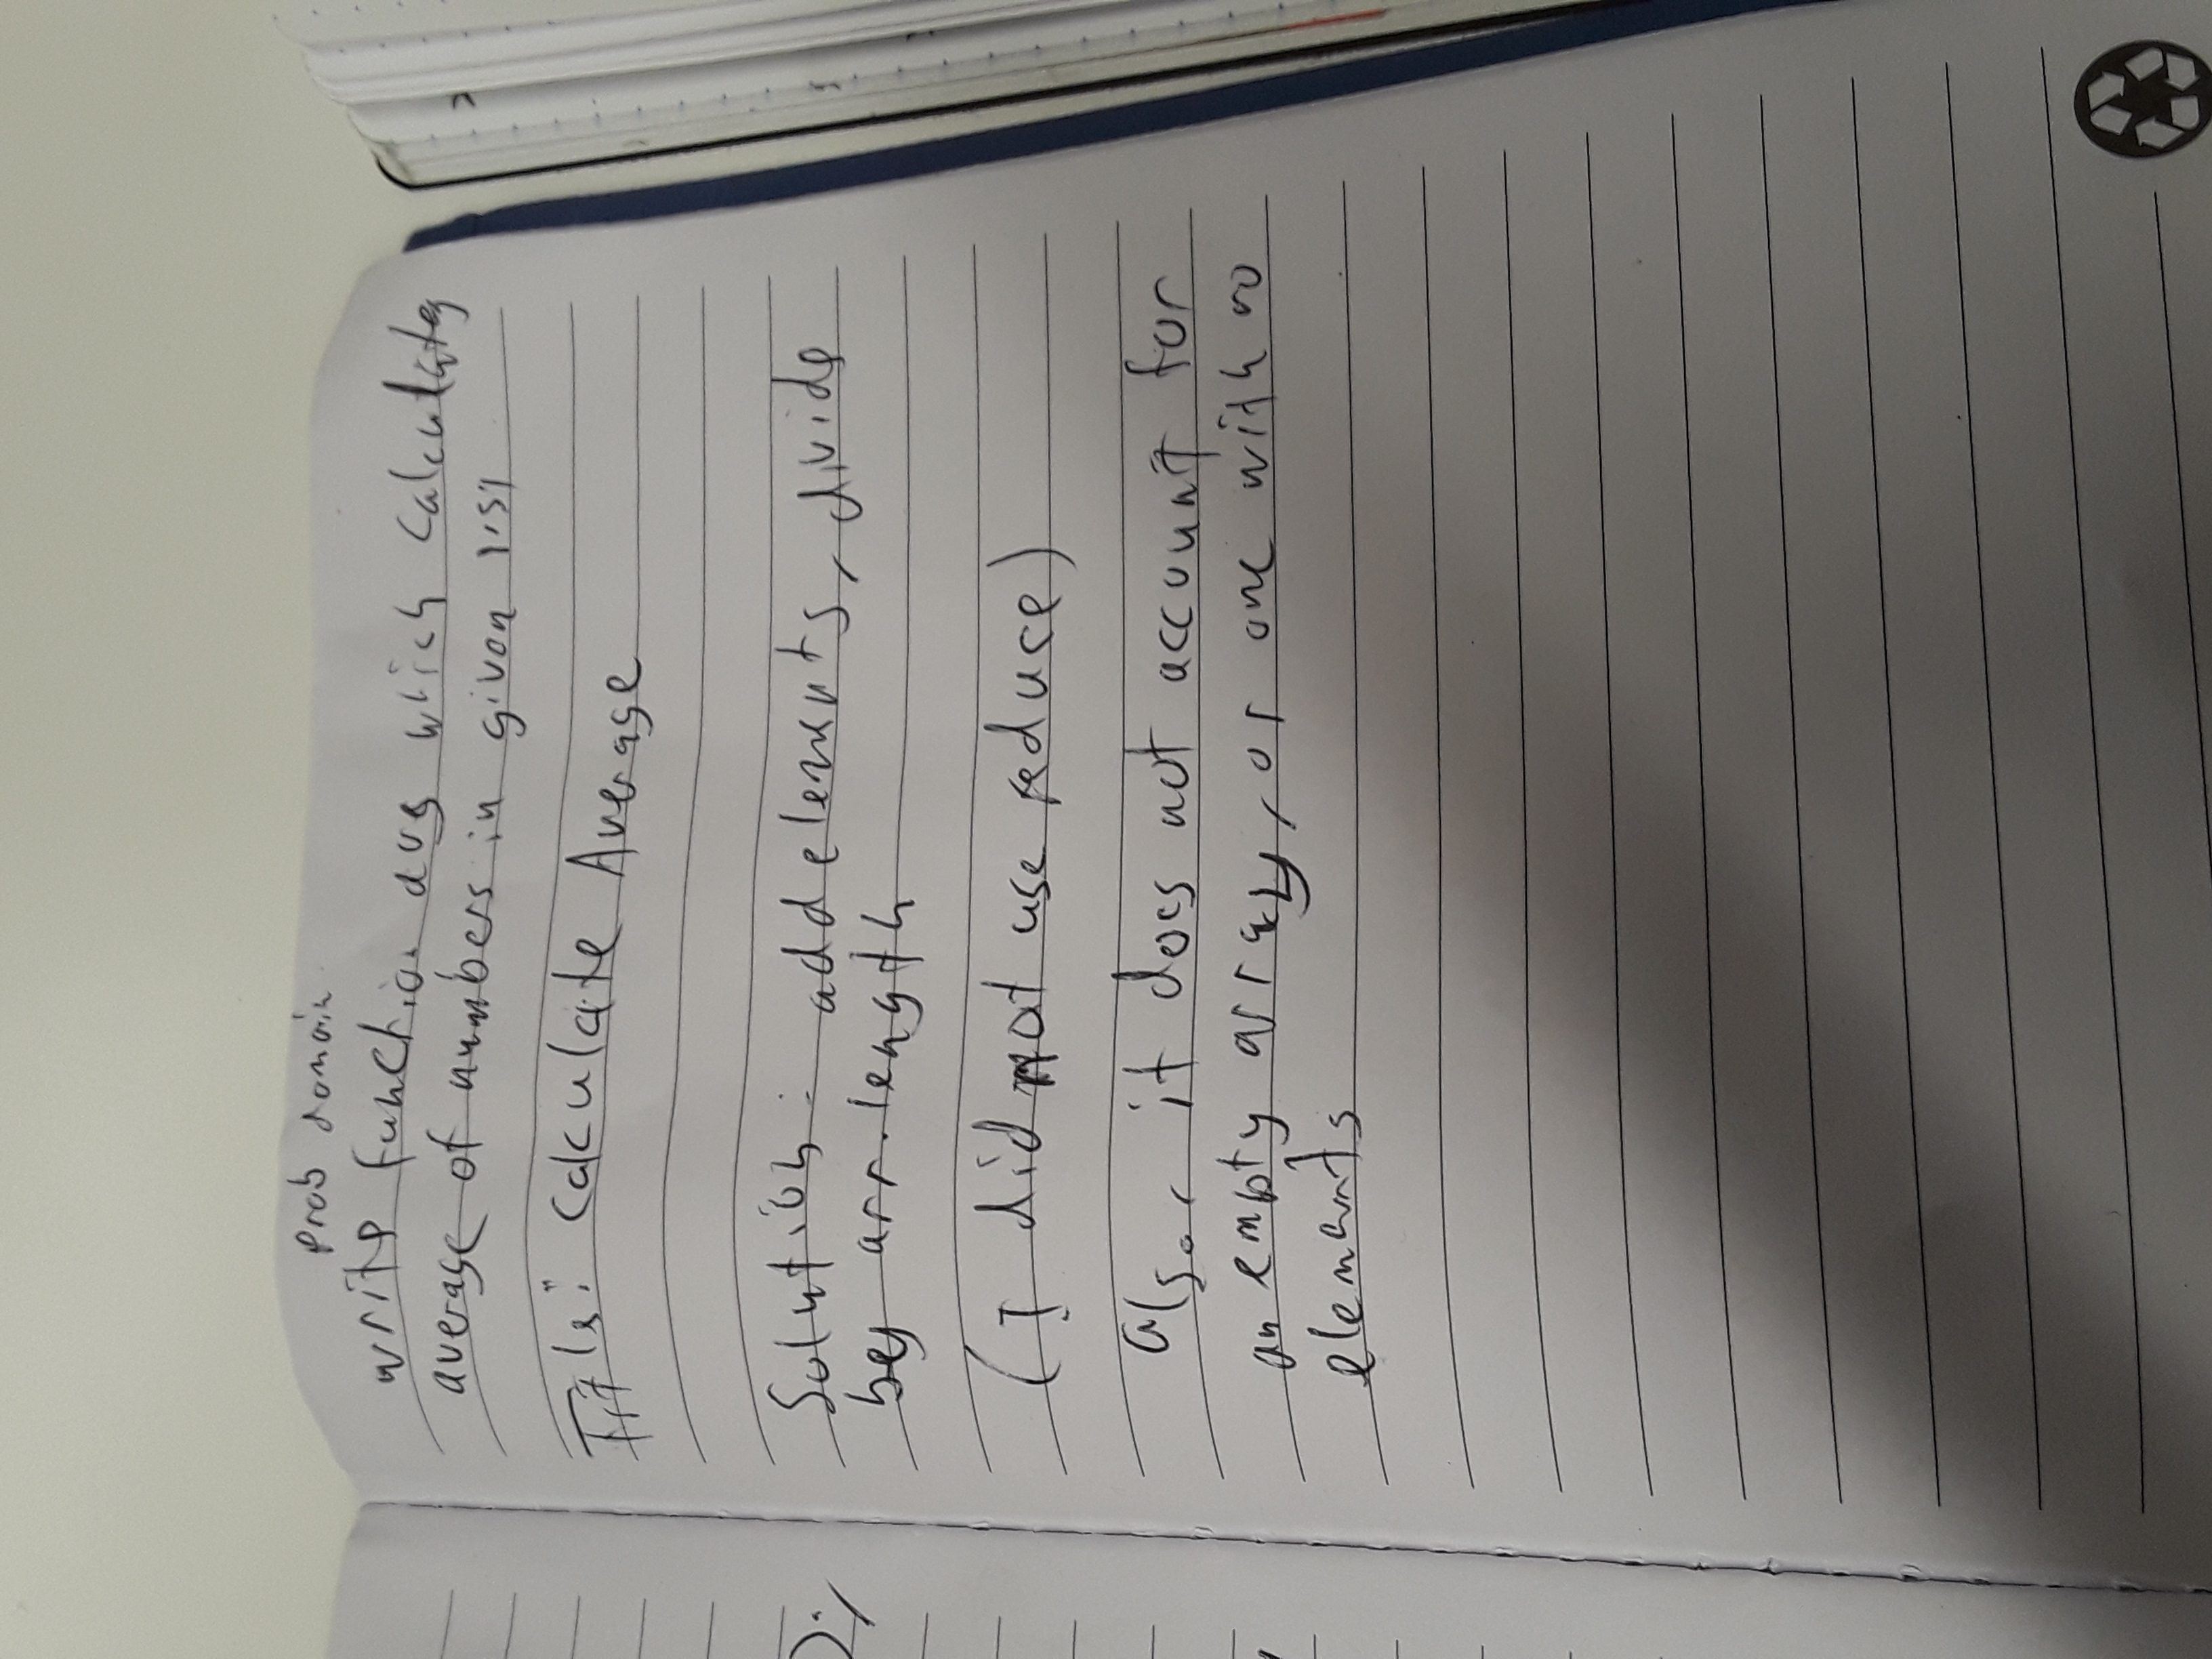 prob domain
write function avg which calculates
average of numbers in given list
Title: Calculate Average
Solution: add elements, divide
by arr.length
(I did not use reduce)
also, it does not account for
an empty array, or one with no
elements
);